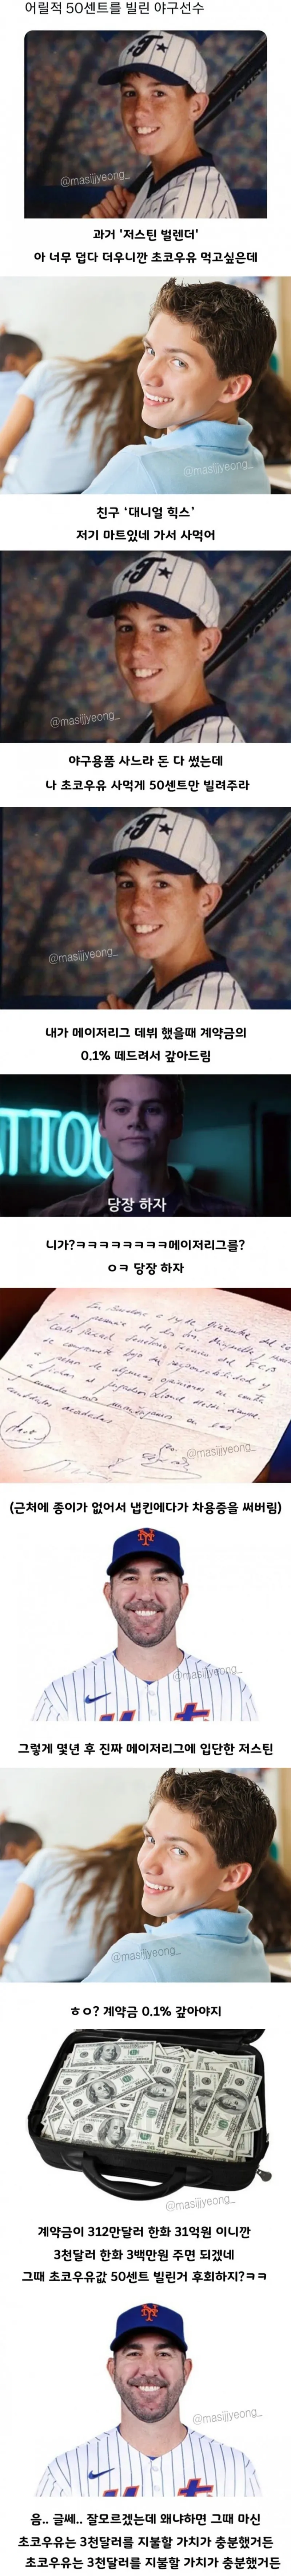 어릴적 50센트를 빌린 야구선수
@masijjyeong_
과거 '저스틴 벌렌더'
아 너무 덥다 더우니깐 초코우유 먹고싶은데
@masijjyeong_
친구 ‘대니얼 힉스’
저기 마트있네 가서 사먹어
@masijjyeong_
야구용품 사느라 돈 다 썼는데
나 초코우유 사먹게 50센트만 빌려주라
@masijjyeong_
내가 메이저리그 데뷔 했을때 계약금의
0.1% 떼드려서 갚아드림
TTOO
당장 하자
니가?ㅋㅋㅋㅋㅋㅋㅋㅋ메이저리그를?
ㅇㅋ 당장 하자
@masijjyeong_
(근처에 종이가 없어서 냅킨에다가 차용증을 써버림)
@masijjyeong_
그렇게 몇년 후 진짜 메이저리그에 입단한 저스틴
@masijjyeong_
ㅎㅇ? 계약금 0.1% 갚아야지
@masijjyeong_
계약금이 312만달러 한화 31억원 이니깐
3천달러 한화 3백만원 주면 되겠네
그때 초코우유값 50센트 빌린거 후회하지?ㅋㅋ
@masijjyeong_
음.. 글쎄.. 잘모르겠는데 왜냐하면 그때 마신
초코우유는 3천달러를 지불할 가치가 충분했거든
초코우유는 3천달러를 지불할 가치가 충분했거든